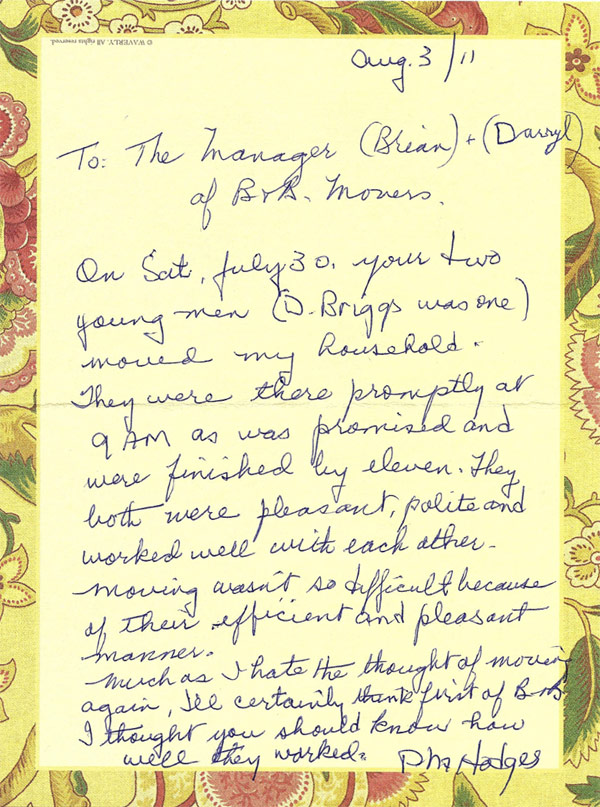 © WAVERLY. All rights reserved.
Aug. 3/11
To: The Manager (Brian) + (Darryl)
of B&B. Movers.
On Sat, July 30, your two
young men (D. Briggs was one)
moved my household.
They were there promptly at
9 AM as was promised and
were finished by eleven. They
both were pleasant, polite and
worked well with each other.
Moving wasn't so difficult because
of their efficient and pleasant
manner.
Much as I hate the thought of moving
again, I'll certainly think first of B&B
I thought you should know how
well they worked.
Hodges